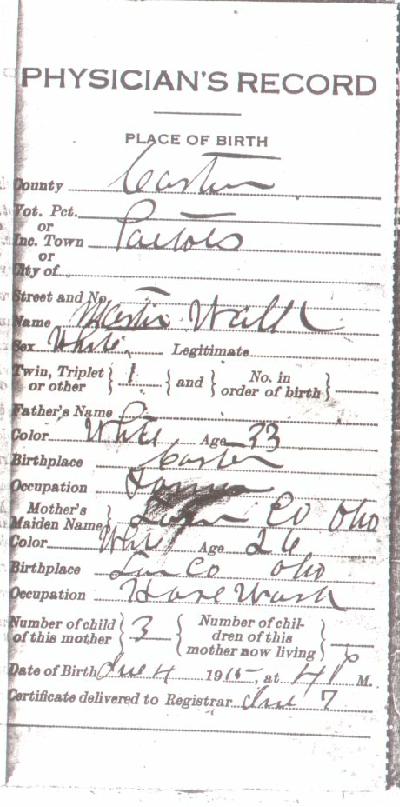 PHYSICIAN'S RECORD
PLACE OF BIRTH
County Carter
Vot. Pct.
or
Inc. Town
or
City of
Street and No.
Name Walk
Sex White Legitimate
Twin, Triplet or other { 1 } and { No. in order of birth }
Father's Name
Color White Age 33
Birthplace Carter
Occupation Farmer
Mother's Maiden Name } Co Ohio
Color White Age 26
Birthplace Co Ohio
Occupation House Work
Number of child of this mother } 3 { Number of children of this mother now living }
Date of Birth June 4 1915, at 4 P M.
Certificate delivered to Registrar June 7